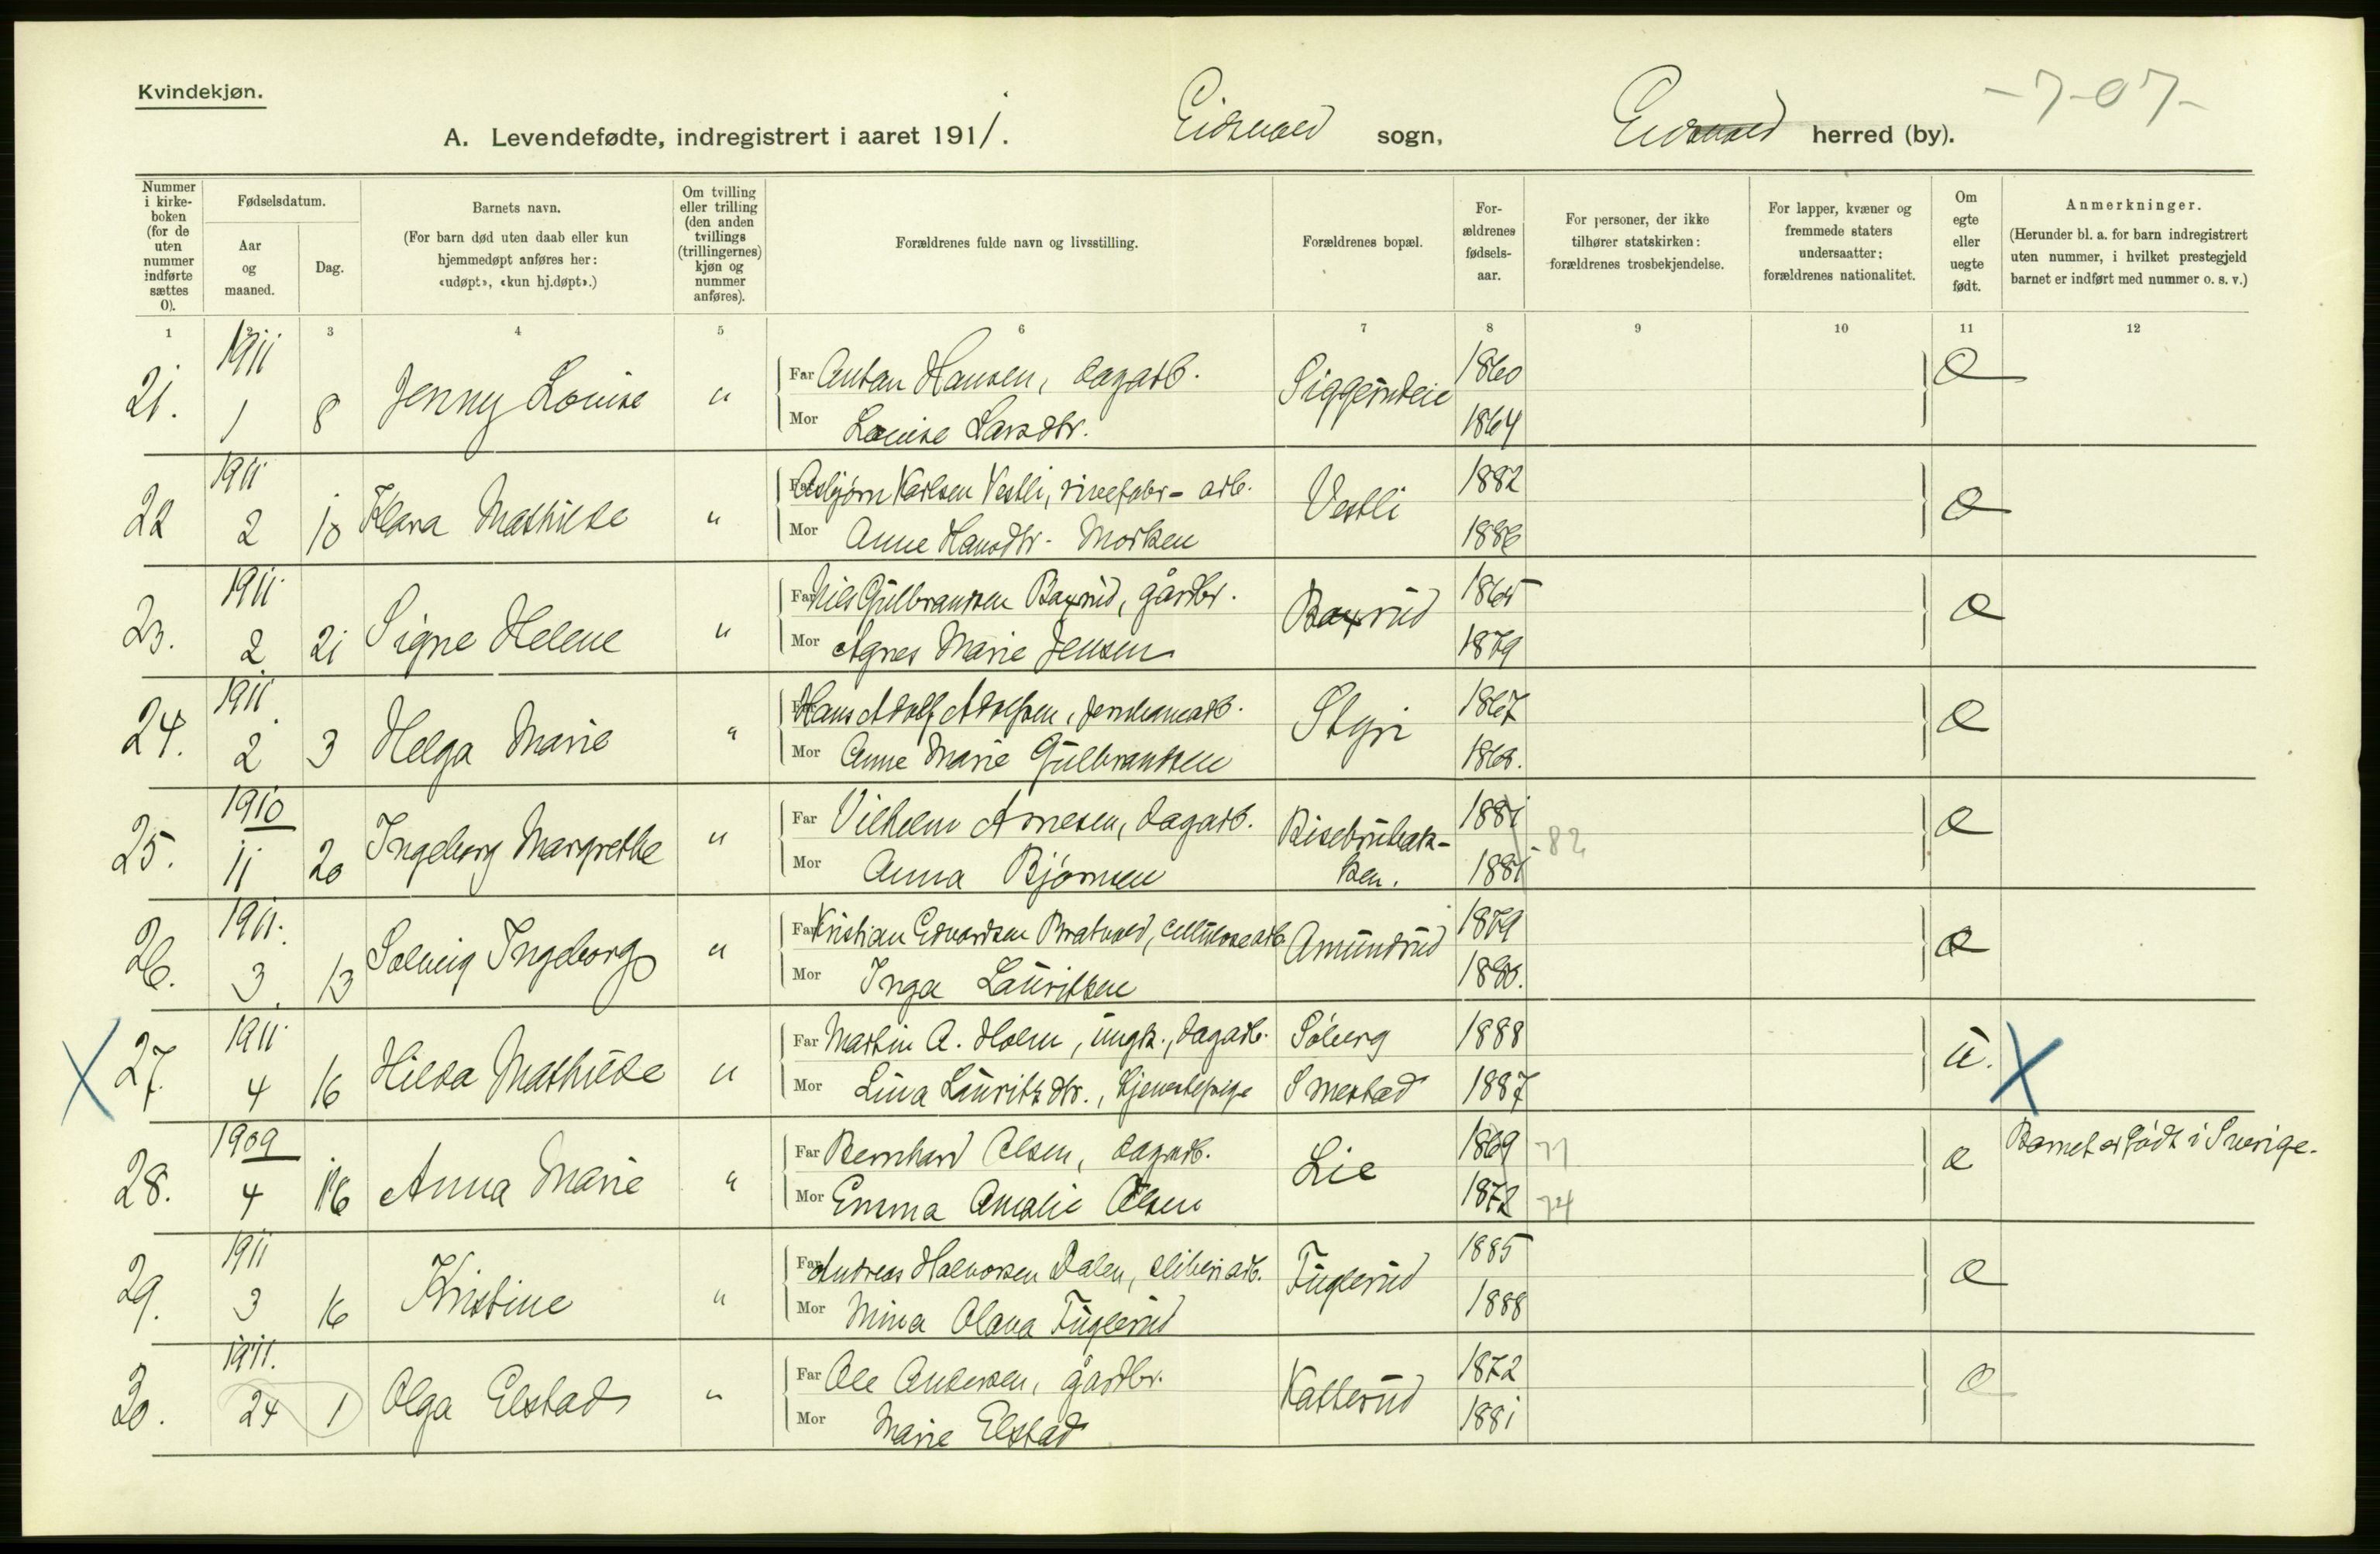 Kvindekjøn.
-7-07-
A. Levendefødte, indregistrert i aaret 1911. Eidsvold sogn, Eidsvold herred (by).
Nummer i kirke-boken (for de uten nummer indførte sættes 0).
Fødselsdatum.
Aar og maaned.
Dag.
Barnets navn.
(For barn død uten daab eller kun hjemmedøpt anføres her: «udøpt», «kun hj.døpt».)
Om tvilling eller trilling (den anden tvillings (trillingernes) kjøn og nummer anføres).
Forældrenes fulde navn og livsstilling.
Forældrenes bopæl.
For-ældrenes fødsels-aar.
For personer, der ikke tilhører statskirken: forældrenes trosbekjendelse.
For lapper, kvæner og fremmede staters undersaatter: forældrenes nationalitet.
Om egte eller uegte født.
Anmerkninger.
(Herunder bl. a. for barn indregistrert uten nummer, i hvilket prestegjeld barnet er indført med nummer o. s. v.)
1 2 3 4 5 6 7 8 9 10 11 12
21. 1911 1 8 Jenny Louise " Far Anton Hansen, dagarb. Siggerudeie 1860 e
Mor Louise Larsdtr. 1864
22 1911 2 10 Klara Mathilde " Far Asbjørn Karlsen Vestli, arb. Vestli 1882 e
Mor Anne Hansdtr. Morken 1886
23. 1911 2 21 Signe Helene " Far Nils Gulbrandsen Baxrud, gårdbr. Baxrud 1865 e
Mor Agnes Marie Jensen 1879
24. 1911 2 3 Helga Marie " Far Hans Adolf Adolfsen, jernbanearb. Styri 1867 e
Mor Anne Marie Gulbrandsen 1868.
25. 1910 11 20 Ingeborg Margrethe " Far Vilhelm Arnesen, dagarb. Risebrubak-ken. 1881 e
Mor Anna Bjørnsen 1881 82
26. 1911. 3. 13 Solveig Ingeborg " Far Kristian Edvardsen Bratvold, cellulosearb. Amundrud 1879 e
Mor Inga Lauritsen 1880.
X 27. 1911 4 16 Hilda Mathilde " Far Martin A. Holm, ungk., dagarb. Solberg 1888 u. X
Mor Lina Lauritzdtr., tjenestepige Smestad 1887
28. 1909 4 16 Anna Marie " Far Bernhard Olsen, dagarb. Lie 1869 71 e Barnet er født i Sverige.
Mor Emma Amalie Olsen 1872 74
29. 1911 3 16 Kristine " Far Andreas Halvorsen Dalen, sliberiarb. Fuglerud 1885 e
Mor Mina Olava Fuglerud 1888
30. 1911. 24 1 Olga Elstad " Far Ole Andersen, gårdbr. Katterud 1872 e
Mor Marie Elstad 1881